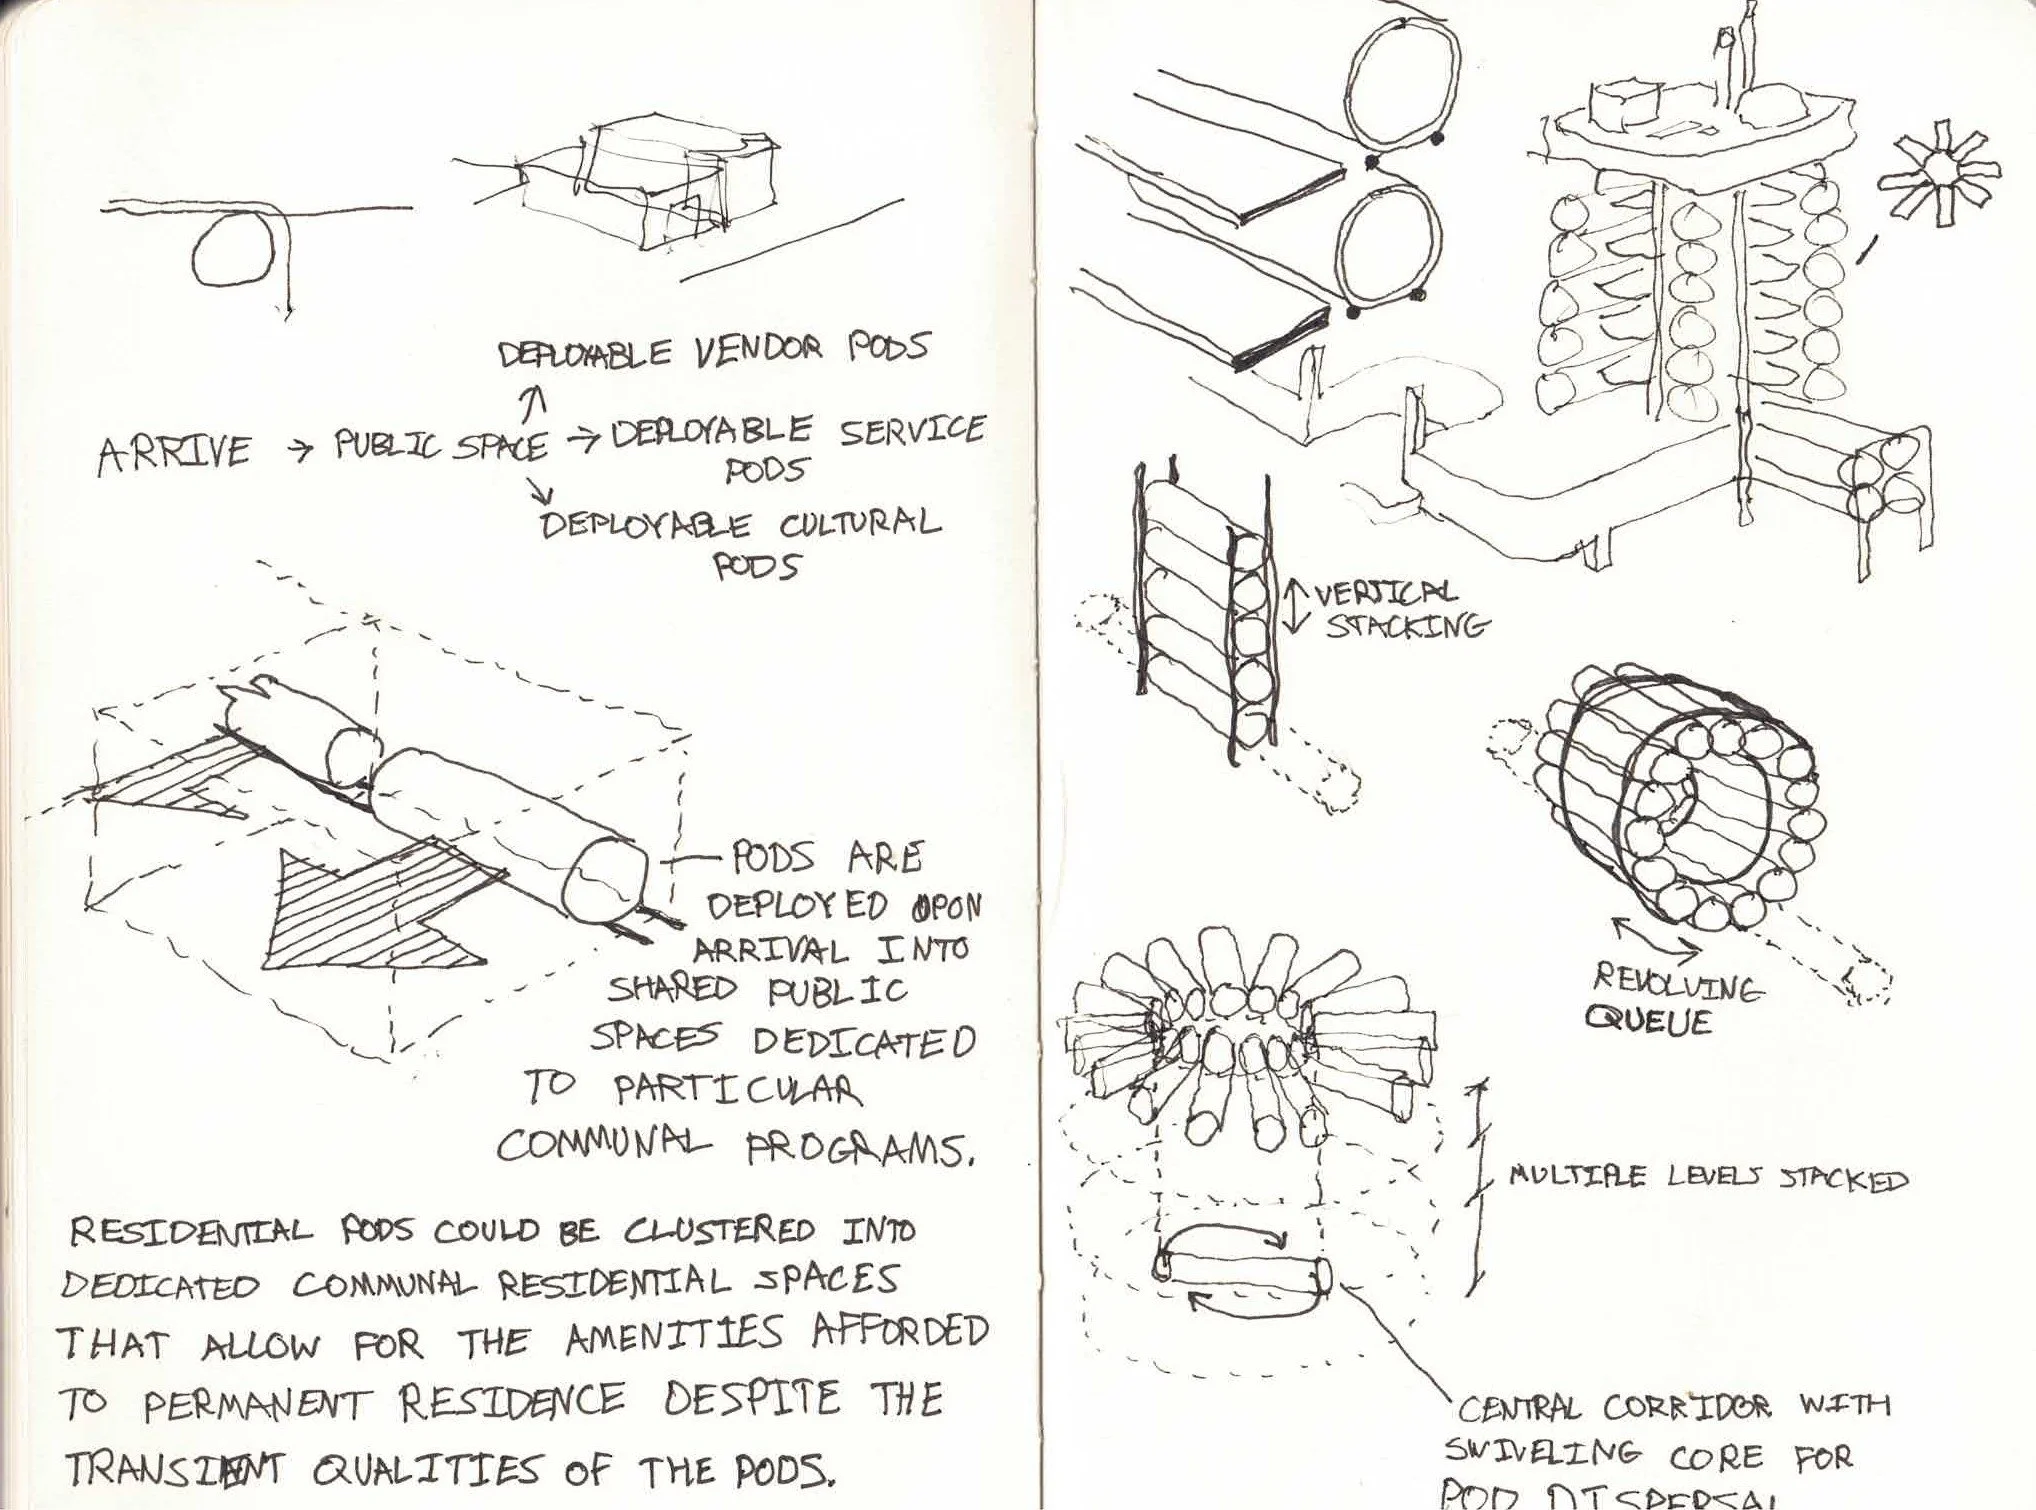 DEPLOYABLE VENDOR PODS
ARRIVE → PUBLIC SPACE → DEPLOYABLE SERVICE
PODS
DEPLOYABLE CULTURAL
PODS
PODS ARE
DEPLOYED UPON
ARRIVAL INTO
SHARED PUBLIC
SPACES DEDICATED
TO PARTICULAR
COMMUNAL PROGRAMS.
RESIDENTIAL PODS COULD BE CLUSTERED INTO
DEDICATED COMMUNAL RESIDENTIAL SPACES
THAT ALLOW FOR THE AMENITIES AFFORDED
TO PERMANENT RESIDENCE DESPITE THE
TRANSIENT QUALITIES OF THE PODS.
VERTICAL
STACKING
REVOLVING
QUEUE
MULTIPLE LEVELS STACKED
CENTRAL CORRIDOR WITH
SWIVELING CORE FOR
POD DISPERSAL